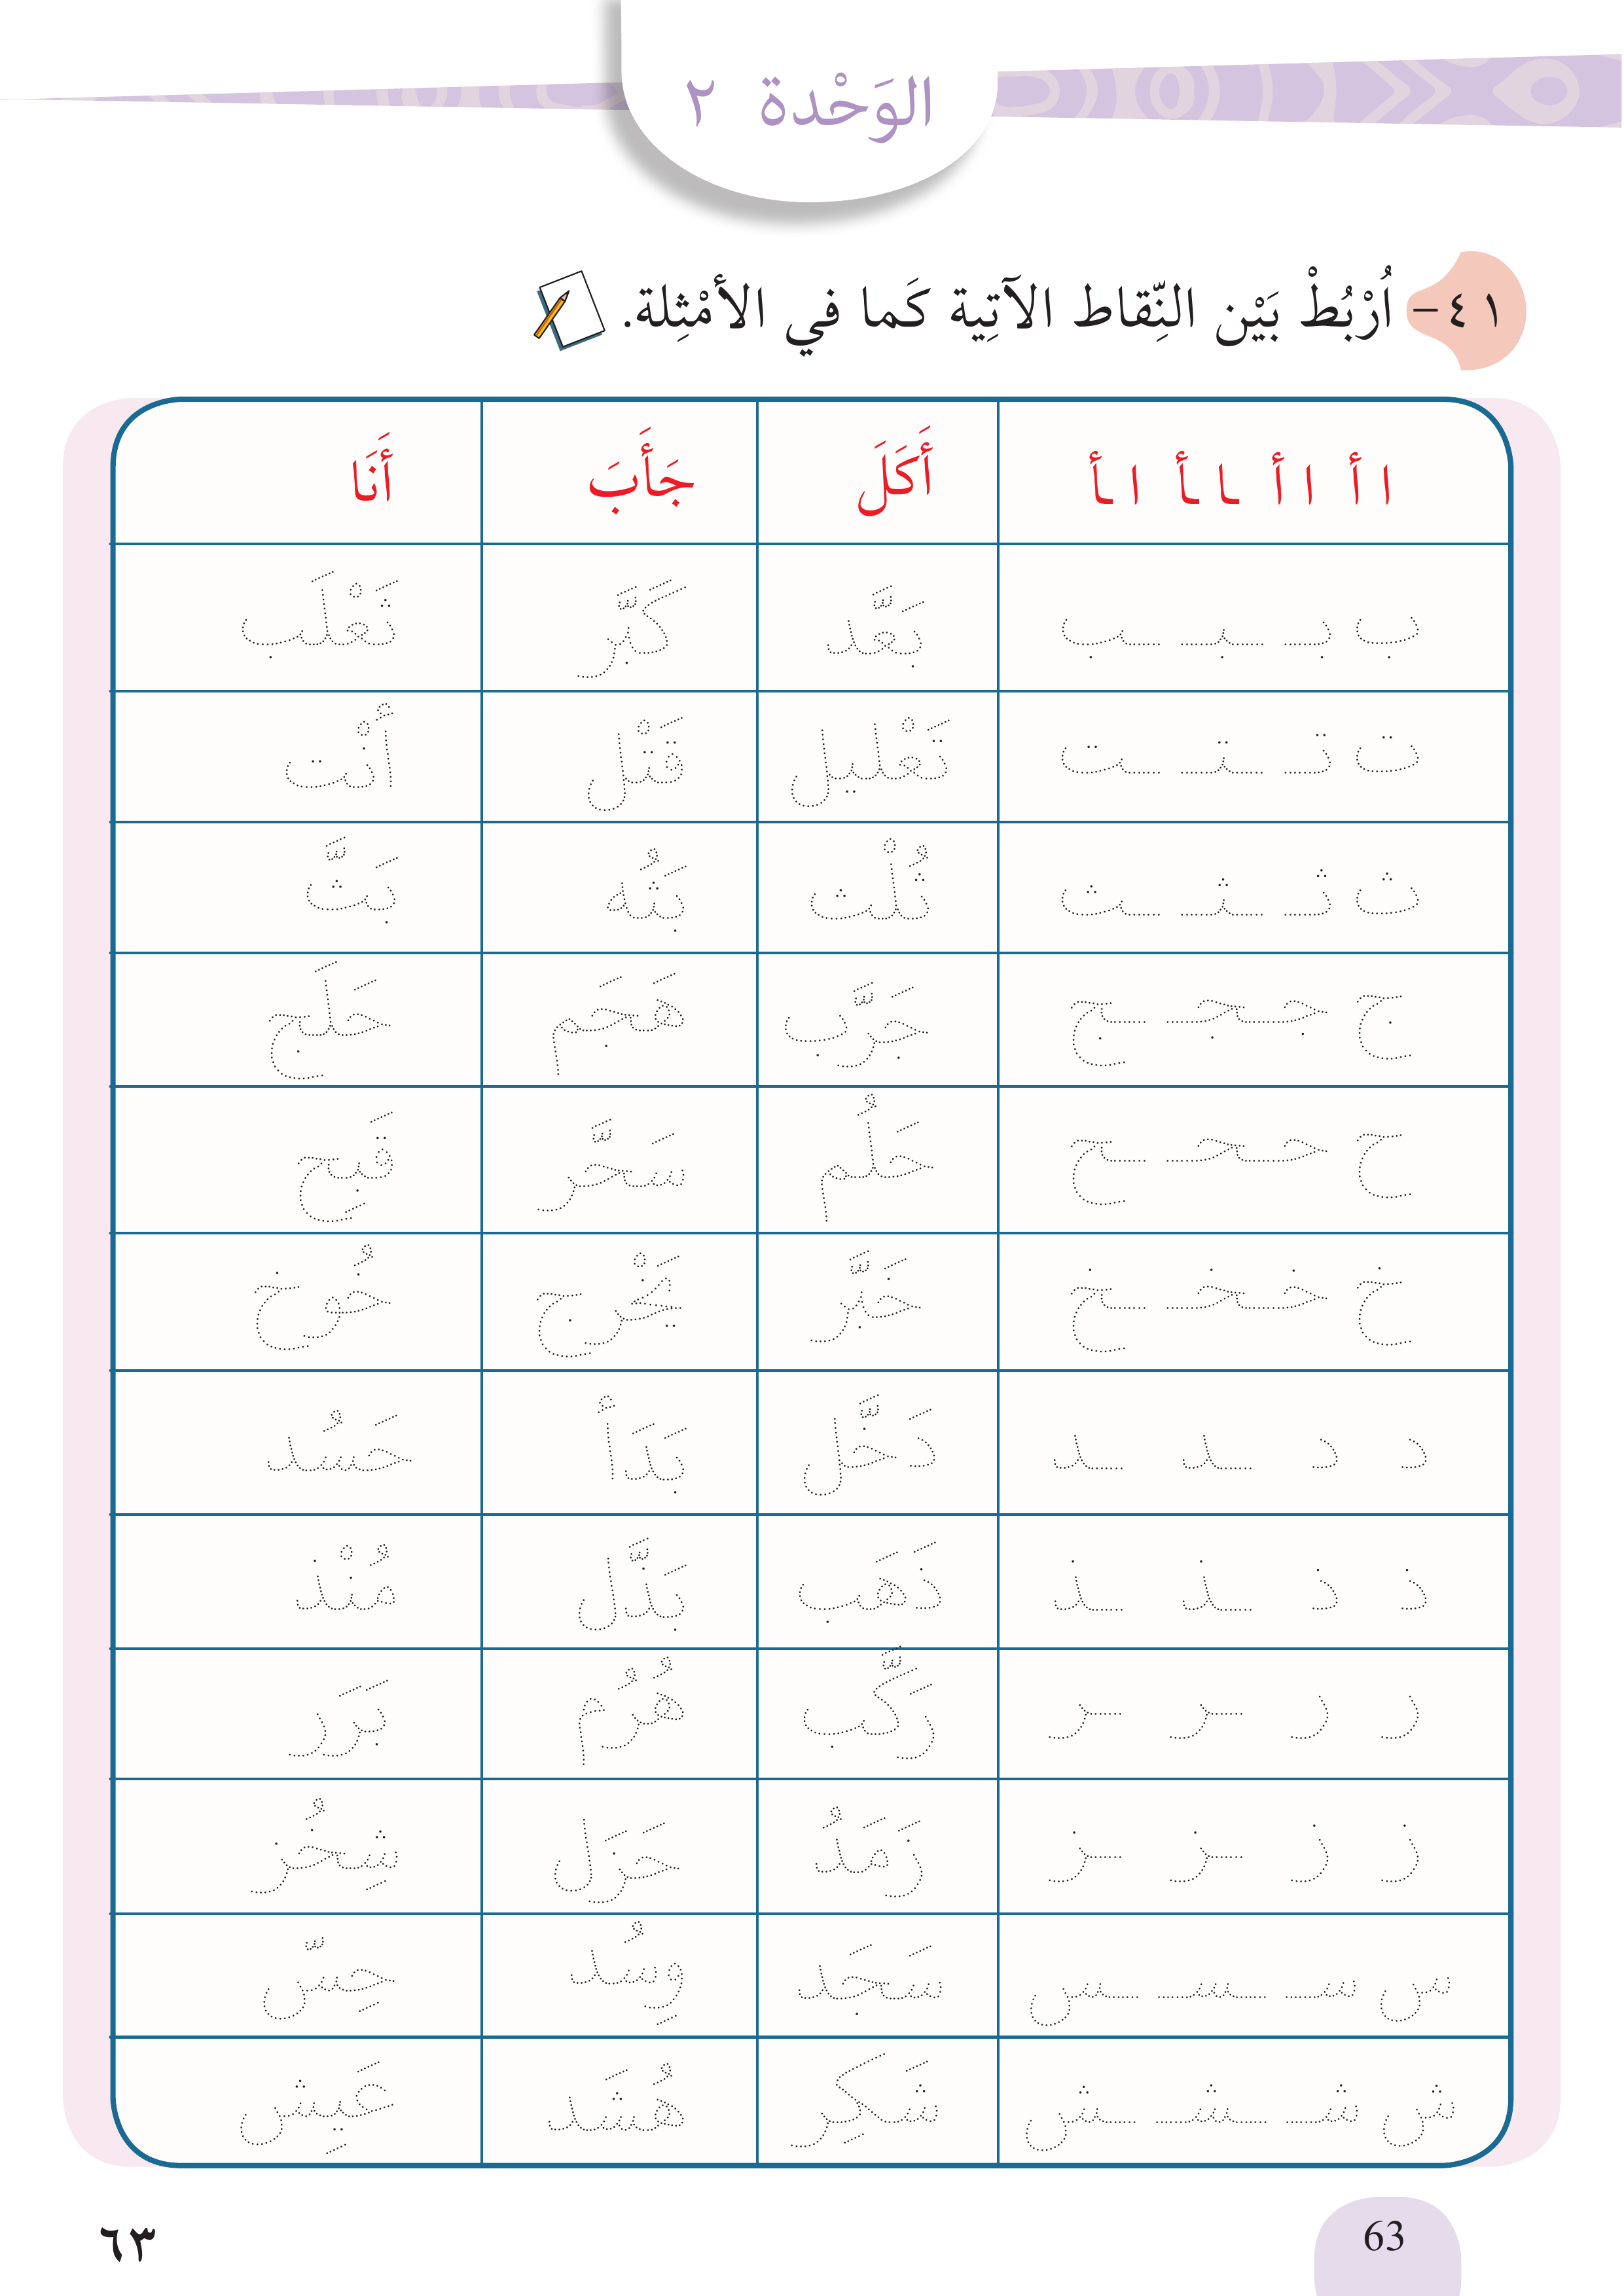 الوَحْدة ٢
١٤- اُرْبُطْ بَيْن النِّقاط الآتِية كَما في الأمْثِلة.
ا أ ا أ ـا ـأ ا ـأ أَكَلَ جَأَبَ أَنَا
ب بـ ـبـ ـب بَعَّد كَبَّر ثَعْلَب
ت تـ ـتـ ـت تَعْليل قَتْل أْنْت
ث ثـ ـثـ ـث ثُلْث بَثُه بَثَّ
ج جـ ـجـ ـج جَرَّب هَجَم حَلَج
ح حـ ـحـ ـح حَلُم سَحَّر قَبِح
خ خـ ـخـ ـخ خَبَّر يَخْرج خُوخ
د د ـد ـد دَخَّل بَدَأ حَسُد
ذ ذ ـذ ـذ ذَهَب بَذَّل مُنْذ
ر ر ـر ـر رَكَّب هُرُم بَرَر
ز ز ـز ـز زَمَدُ حَزَل شِخُز
س سـ ـسـ ـس سَجَد وِسُد حِسّ
ش شـ ـشـ ـش شَكِر هُشَد عَيِش
٦٣
63